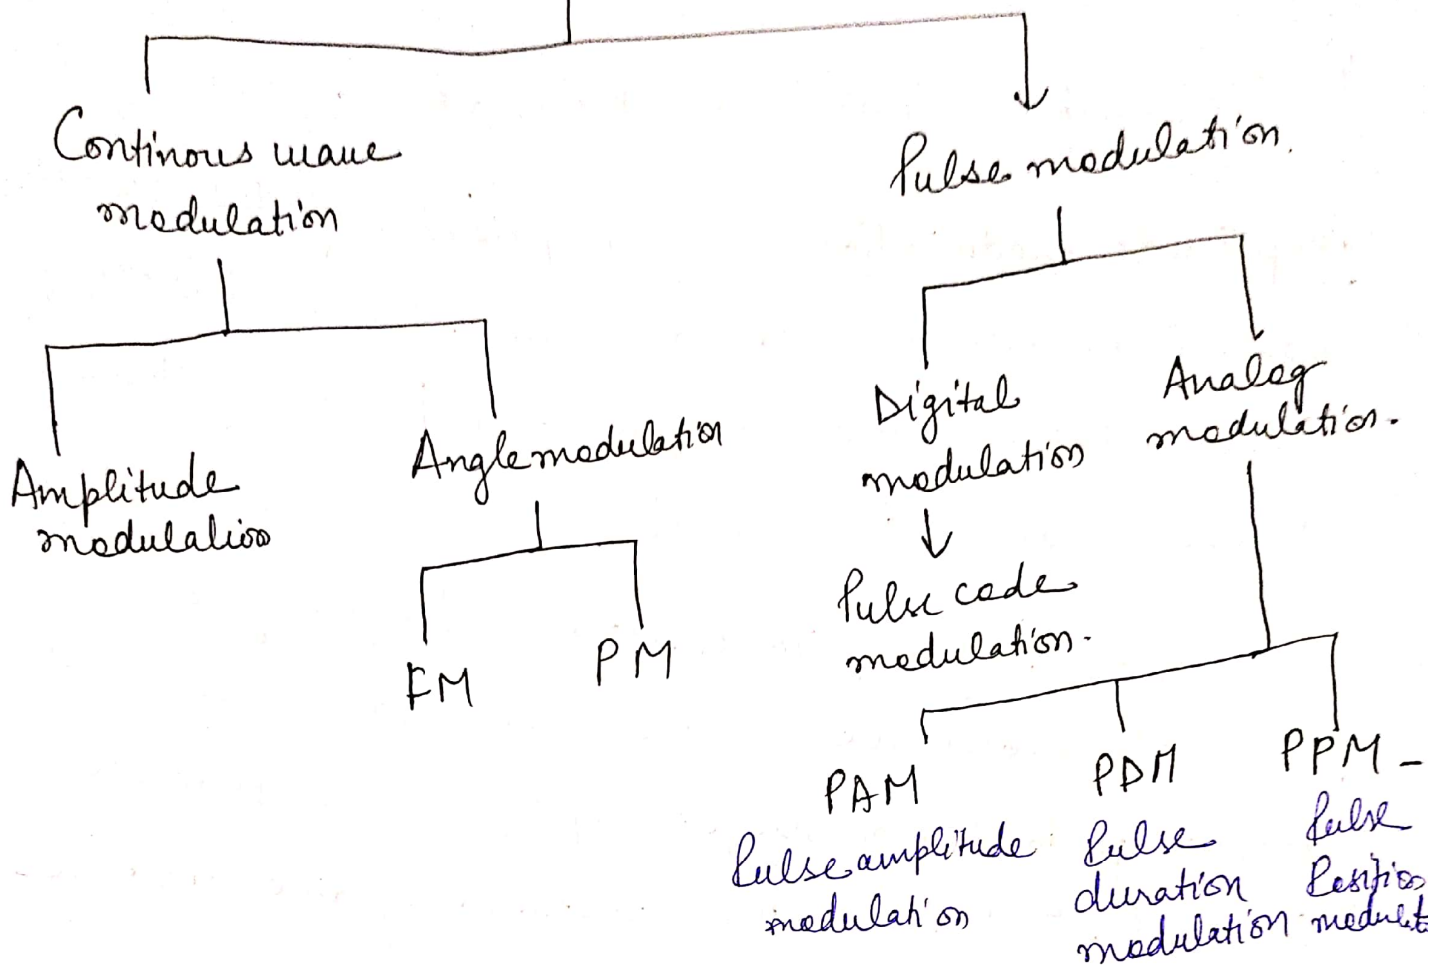 Continous wave
modulation
Pulse modulation.
Amplitude
modulation
Angle modulation
FM
PM
Digital
modulation
Analog
modulation.
Pulse code
modulation.
PAM
Pulse amplitude
modulation
PDM
Pulse
duration
modulation
PPM -
Pulse
Position
modulat